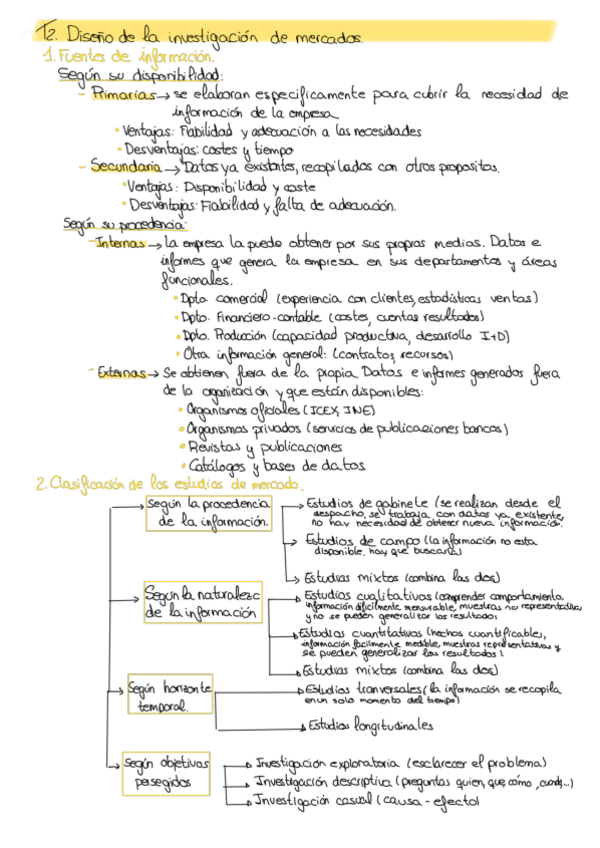 T2. Diseño de la investigación de mercados.
1. Fuentes de información.
Según su disponibilidad:
- Primarias → se elaboran especificamente para cubrir la necesidad de
información de la empresa
• Ventajas: Fiabilidad y adecuación a las necesidades
• Desventajas: costes y tiempo
- Secundaria → Datos ya existentes, recopilados con otros propositos.
• Ventajas: Disponibilidad y coste
• Desventajas: Fiabilidad y falta de adecuación.
Según su procedencia:
- Internas → La empresa la puede obtener por sus propias medias. Datos e
informes que genera la empresa en sus departamentos y áreas
funcionales.
• Dpto. comercial (experiencia con clientes, estadísticas ventas)
• Dpto. Financiero-contable (costes, cuentas resultados)
• Dpto. Producción (capacidad productiva, desarrollo I+D)
• Otra información general: (contratos, recursos)
- Externas → Se obtienen fuera de la propia. Datos e informes generados fuera
de la organización y que están disponibles:
• Organismos oficiales (ICEX, INE)
• Organismos privados (servicios de publicaciones bancos)
• Revistas y publicaciones
• Catálogos y bases de datos
2. Clasificación de los estudios de mercado.
Según la procedencia
de la información.
→ Estudios de gabinete (se realizan desde el
despacho, se trabaja con datos ya existente,
no hay necesidad de obtener nueva información.
→ Estudios de campo (la información no esta
disponible, hay que buscarla)
→ Estudias mixtos (combina las dos)
Según la naturaleza
de la información
→ Estudios cualitativos (comprender comportamiento,
información dificilmente mensurable, muestras no representativa
y no se pueden generalizar los resultados)
→ Estudios cuantitativas (hechos cuantificables,
información facilmente medible, muestras representativas y
se pueden generalizar los resultados).
→ Estudias mixtos (combina las dos)
Según horizonte
temporal.
→ Estudios tranversales (la información se recopila
en un solo momento del tiempo)
→ Estudios longitudinales
Según objetivos
persegidos
→ Investigación exploratoria (esclarecer el problema)
→ Investigación descriptiva (preguntas quien, que, cómo, cuando,...)
→ Investigación casual (causa - efecto)